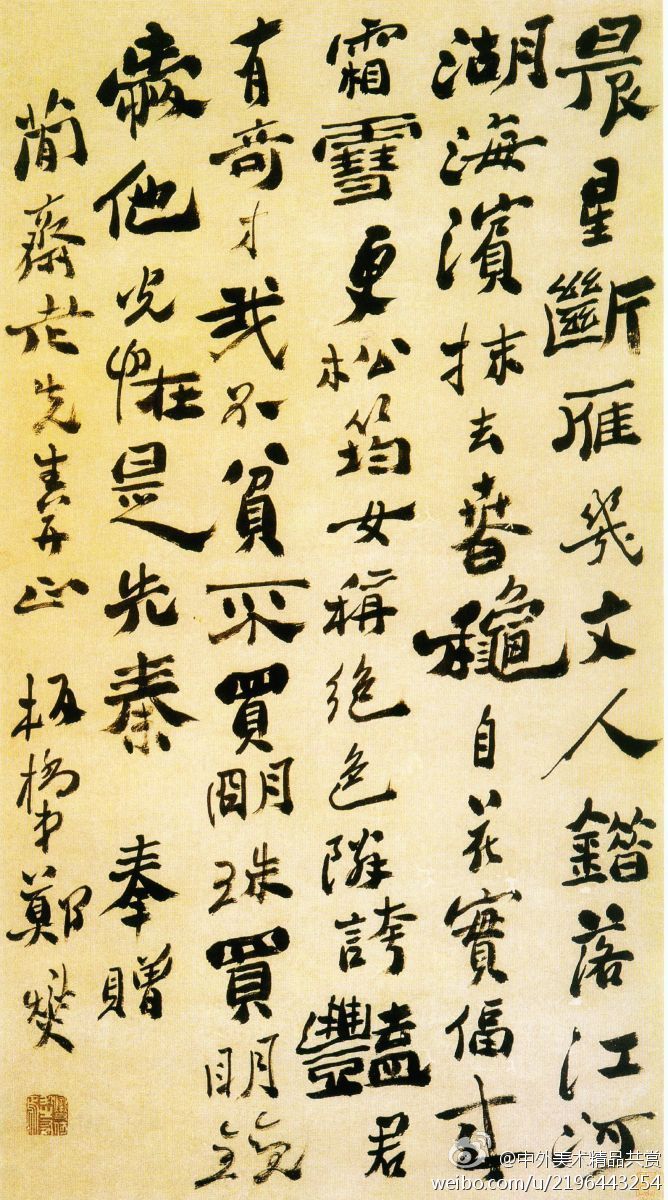 晨星斷雁幾文人錯落江河
湖海濱抹去春龝自花實偪来
霜雪更松筠女稱絕色鄰誇豔君
有奇才我不貧不買朙珠買明鏡
愛他光怪是先秦 奉贈
簡齋老先生正 板橋弟鄭燮
@中外美术精品共赏
weibo.com/u/2196443254